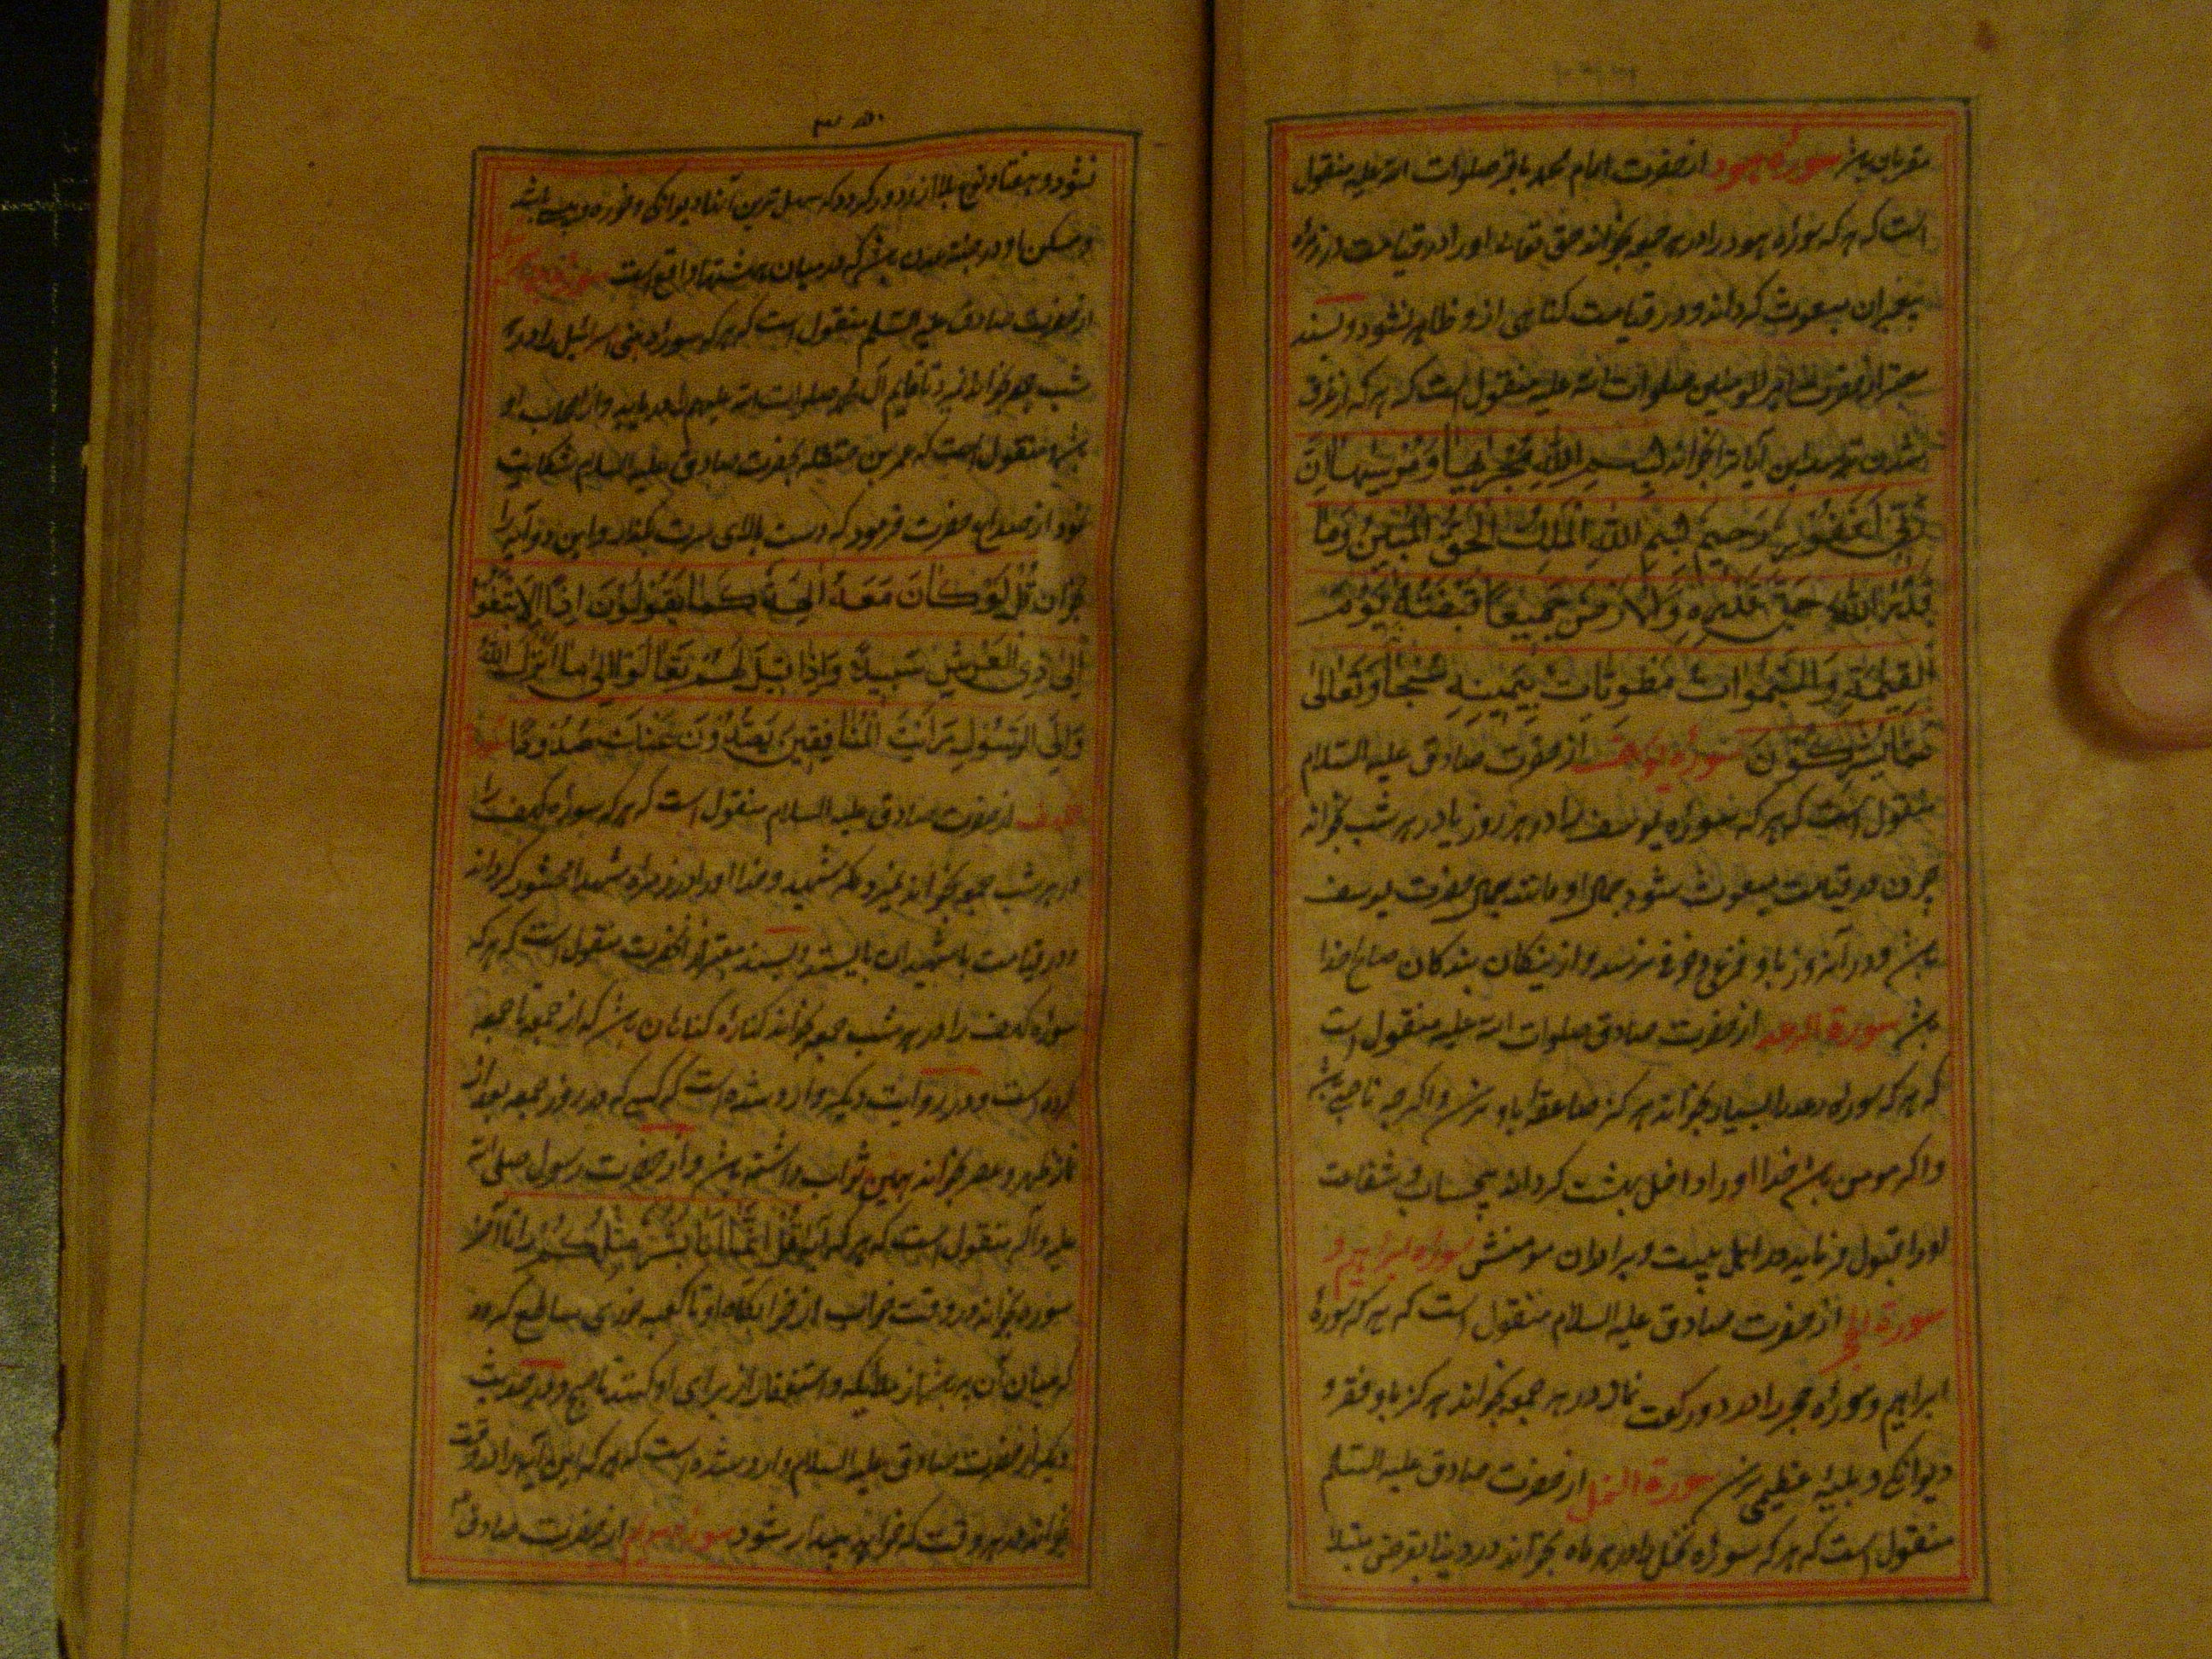 مقربان باشد سوره هود از حضرت امام محمد باقر صلوات الله علیه منقول
است که هر که سوره هود را در هر جمعه بخواند حق تعالی او را در قیامت در زمره
پیغمبران مبعوث گرداند و در قیامت گناهی از و ظاهر نشود و بسند
معتبر از حضرت امیر المومنین صلوات الله علیه منقول است که هر که از غرق
شدن ترسد این آیات را بخواند بِسْمِ اللهِ مَجْریها وَمُرْسٰیها اِنَّ
رَبّی لَغَفُورٌ رَحیمٌ بِسْمِ اللهِ الْمَلِكِ الْحَقِّ الْمُبینِ وَمٰا
قَدَرُوا اللهَ حَقَّ قَدْرِهِ وَالْاَرْضُ جَمیعًا قَبْضَتُهُ یَوْمَ
الْقِیٰمَةِ وَالسَّمٰوٰاتُ مَطْوِیّٰاتٌ بِیَمینِهِ سُبْحٰانَهُ وَتَعٰالٰی
عَمّٰا یُشْرِکُونَ سوره یوسف از حضرت صادق علیه السلام
منقول است که هر که سوره یوسف را در هر روز یا در هر شب بخواند
چون در قیامت مبعوث شود جمال او مانند جمال حضرت یوسف
باشد و در آنروز باو فزعی و خوفی نرسد و از نیکان بندگان صالح خدا
باشد سورة الرعد از حضرت صادق صلوات الله علیه منقول است
که هر که سوره رعد را بسیار بخواند هرگز صاعقه باو نرسد و اگرچه ناصبی باشد
و اگر مومن باشد خدا او را داخل بهشت گرداند بیحساب و شفاعت
او را قبول فرماید در اهل بیت و برادران مومنش سوره ابراهیم و
سورة حجر از حضرت صادق علیه السلام منقول است که هر که سورهٔ
ابراهیم و سوره حجر را در دو رکعت نماز در هر جمعه بخواند هرگز باو فقر و
دیوانگی و بلیهٔ عظیمی نرسد سورة النحل از حضرت صادق علیه السلم
منقول است که هر که سوره نحل را در هر ماه بخواند در دنیا بقرض مبتلا
نشود و هفتاد نوع بلا از و دور گردد که سهل ترین آنها دیوانگی و خوره و پیسی باشد
و مسکن او در جنت عدن باشد که در میان بهشتها واقع است سوره بنی اسرائیل
از حضرت صادق علیه السلم منقول است که هر که سوره بنی اسرائیل را در
شب جمعه بخواند نمیرد تا قایم آل محمد صلوات الله علیهم را دریابد و از اصحاب او
باشد و منقول است که عمر بن حنظله بحضرت صادق علیه السلام شکایت
نمود از صداع حضرت فرمود که دست بالای سرت بگذار و این دو آیه را
بخوان قُلْ لَوْ کٰانَ مَعَهُ اٰلِهَةٌ کَمٰا یَقُولُونَ اِذًا لَابْتَغَوْا
اِلٰی ذِی الْعَرْشِ سَبیلًا وَاِذٰا قیلَ لَهُمْ تَعٰالَوْا اِلٰی مٰا اَنْزَلَ اللهُ
وَاِلَی الرَّسُولِ رَاَیْتَ الْمُنٰافِقینَ یَصُدُّونَ عَنْكَ صُدُودًا سوره
کهف از حضرت صادق علیه السلام منقول است که هر که سوره کهف را
در هر شب جمعه بخواند نمیرد مگر شهید و خدا او را در زمره شهدا محشور گرداند
و در قیامت با شهیدان بایستد و بسند معتبر از آنحضرت منقول است که هر که
سوره کهف را در هر شب جمعه بخواند کفاره گناهان باشد که از جمعه تا جمعه
کرده است و در روایت دیگر وارد شده است که کسی که در روز جمعه بعد از
نماز ظهر و عصر بخواند همین ثواب داشته باشد و از حضرت رسول صلی الله
علیه و آله منقول است که هر که آیه قُلْ اِنَّمٰا اَنَا بَشَرٌ مِثْلُکُمْ را تا آخر
سوره بخواند در وقت خواب از خوابگاه او تا کعبه نوری ساطع گردد
که میان آن پر باشد از ملائکه و استغفار از برای او کنند تا صبح و در حدیث
دیگر از حضرت صادق علیه السلام وارد شده است که هر که این آیه را در وقت
خواب بخواند در هر وقت که خواهد بیدار شود سوره مریم از حضرت صادق